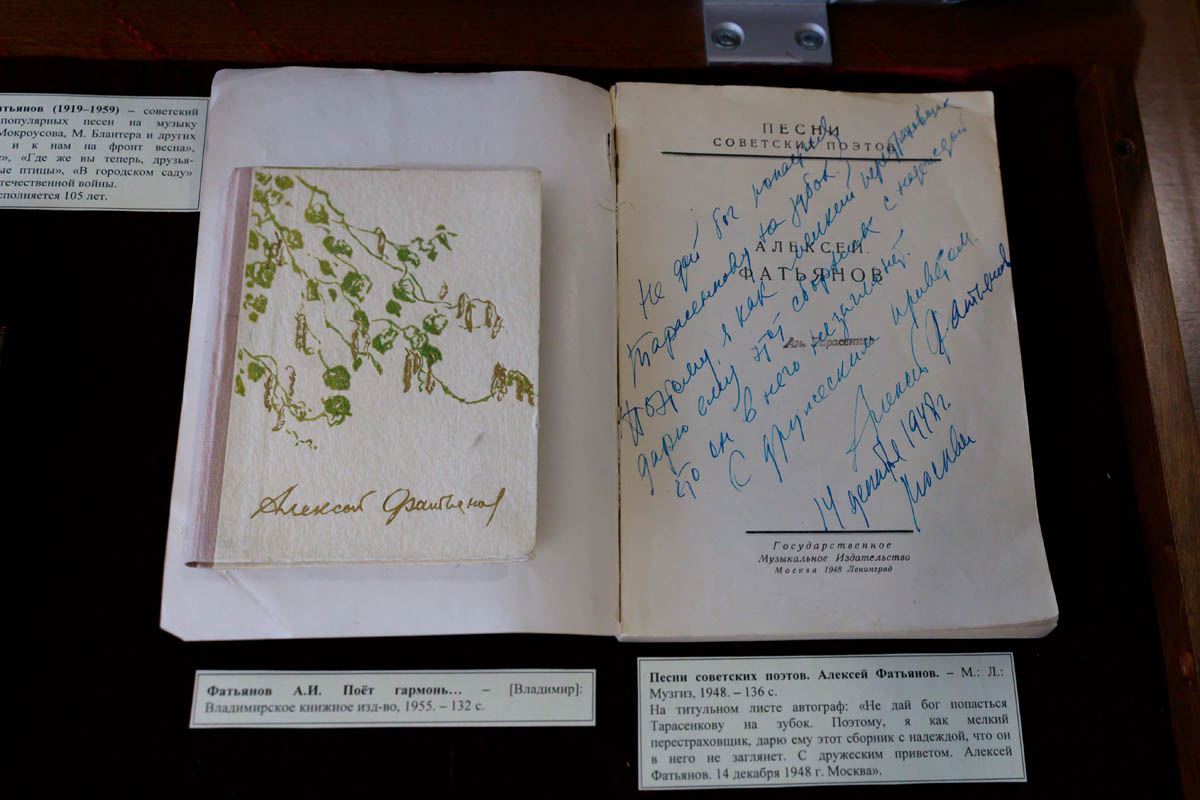 атьянов (1919–1959) – советский
популярных песен на музыку
Мокроусова, М. Блантера и других
и к нам на фронт весна»,
», «Где же вы теперь, друзья-
ые птицы», «В городском саду»
течественной войны.
сполняется 105 лет.
Алексей Фатьянов
ПЕСНИ
СОВЕТСКИХ ПОЭТОВ
АЛЕКСЕЙ
ФАТЬЯНОВ
Ан. Тарасенков
Не дай бог попасться
Тарасенкову на зубок.
Поэтому, я как мелкий перестраховщик
дарю ему этот сборник с надеждой
что он в него не заглянет.
С дружеским приветом.
Алексей Фатьянов
14 декабря 1948 г.
Москва
Государственное
Музыкальное Издательство
Москва 1948 Ленинград
Фатьянов А.И. Поёт гармонь… – [Владимир]:
Владимирское книжное изд-во, 1955. – 132 с.
Песни советских поэтов. Алексей Фатьянов. – М.: Л.:
Музгиз, 1948. – 136 с.
На титульном листе автограф: «Не дай бог попасться
Тарасенкову на зубок. Поэтому, я как мелкий
перестраховщик, дарю ему этот сборник с надеждой, что он
в него не заглянет. С дружеским приветом. Алексей
Фатьянов. 14 декабря 1948 г. Москва».